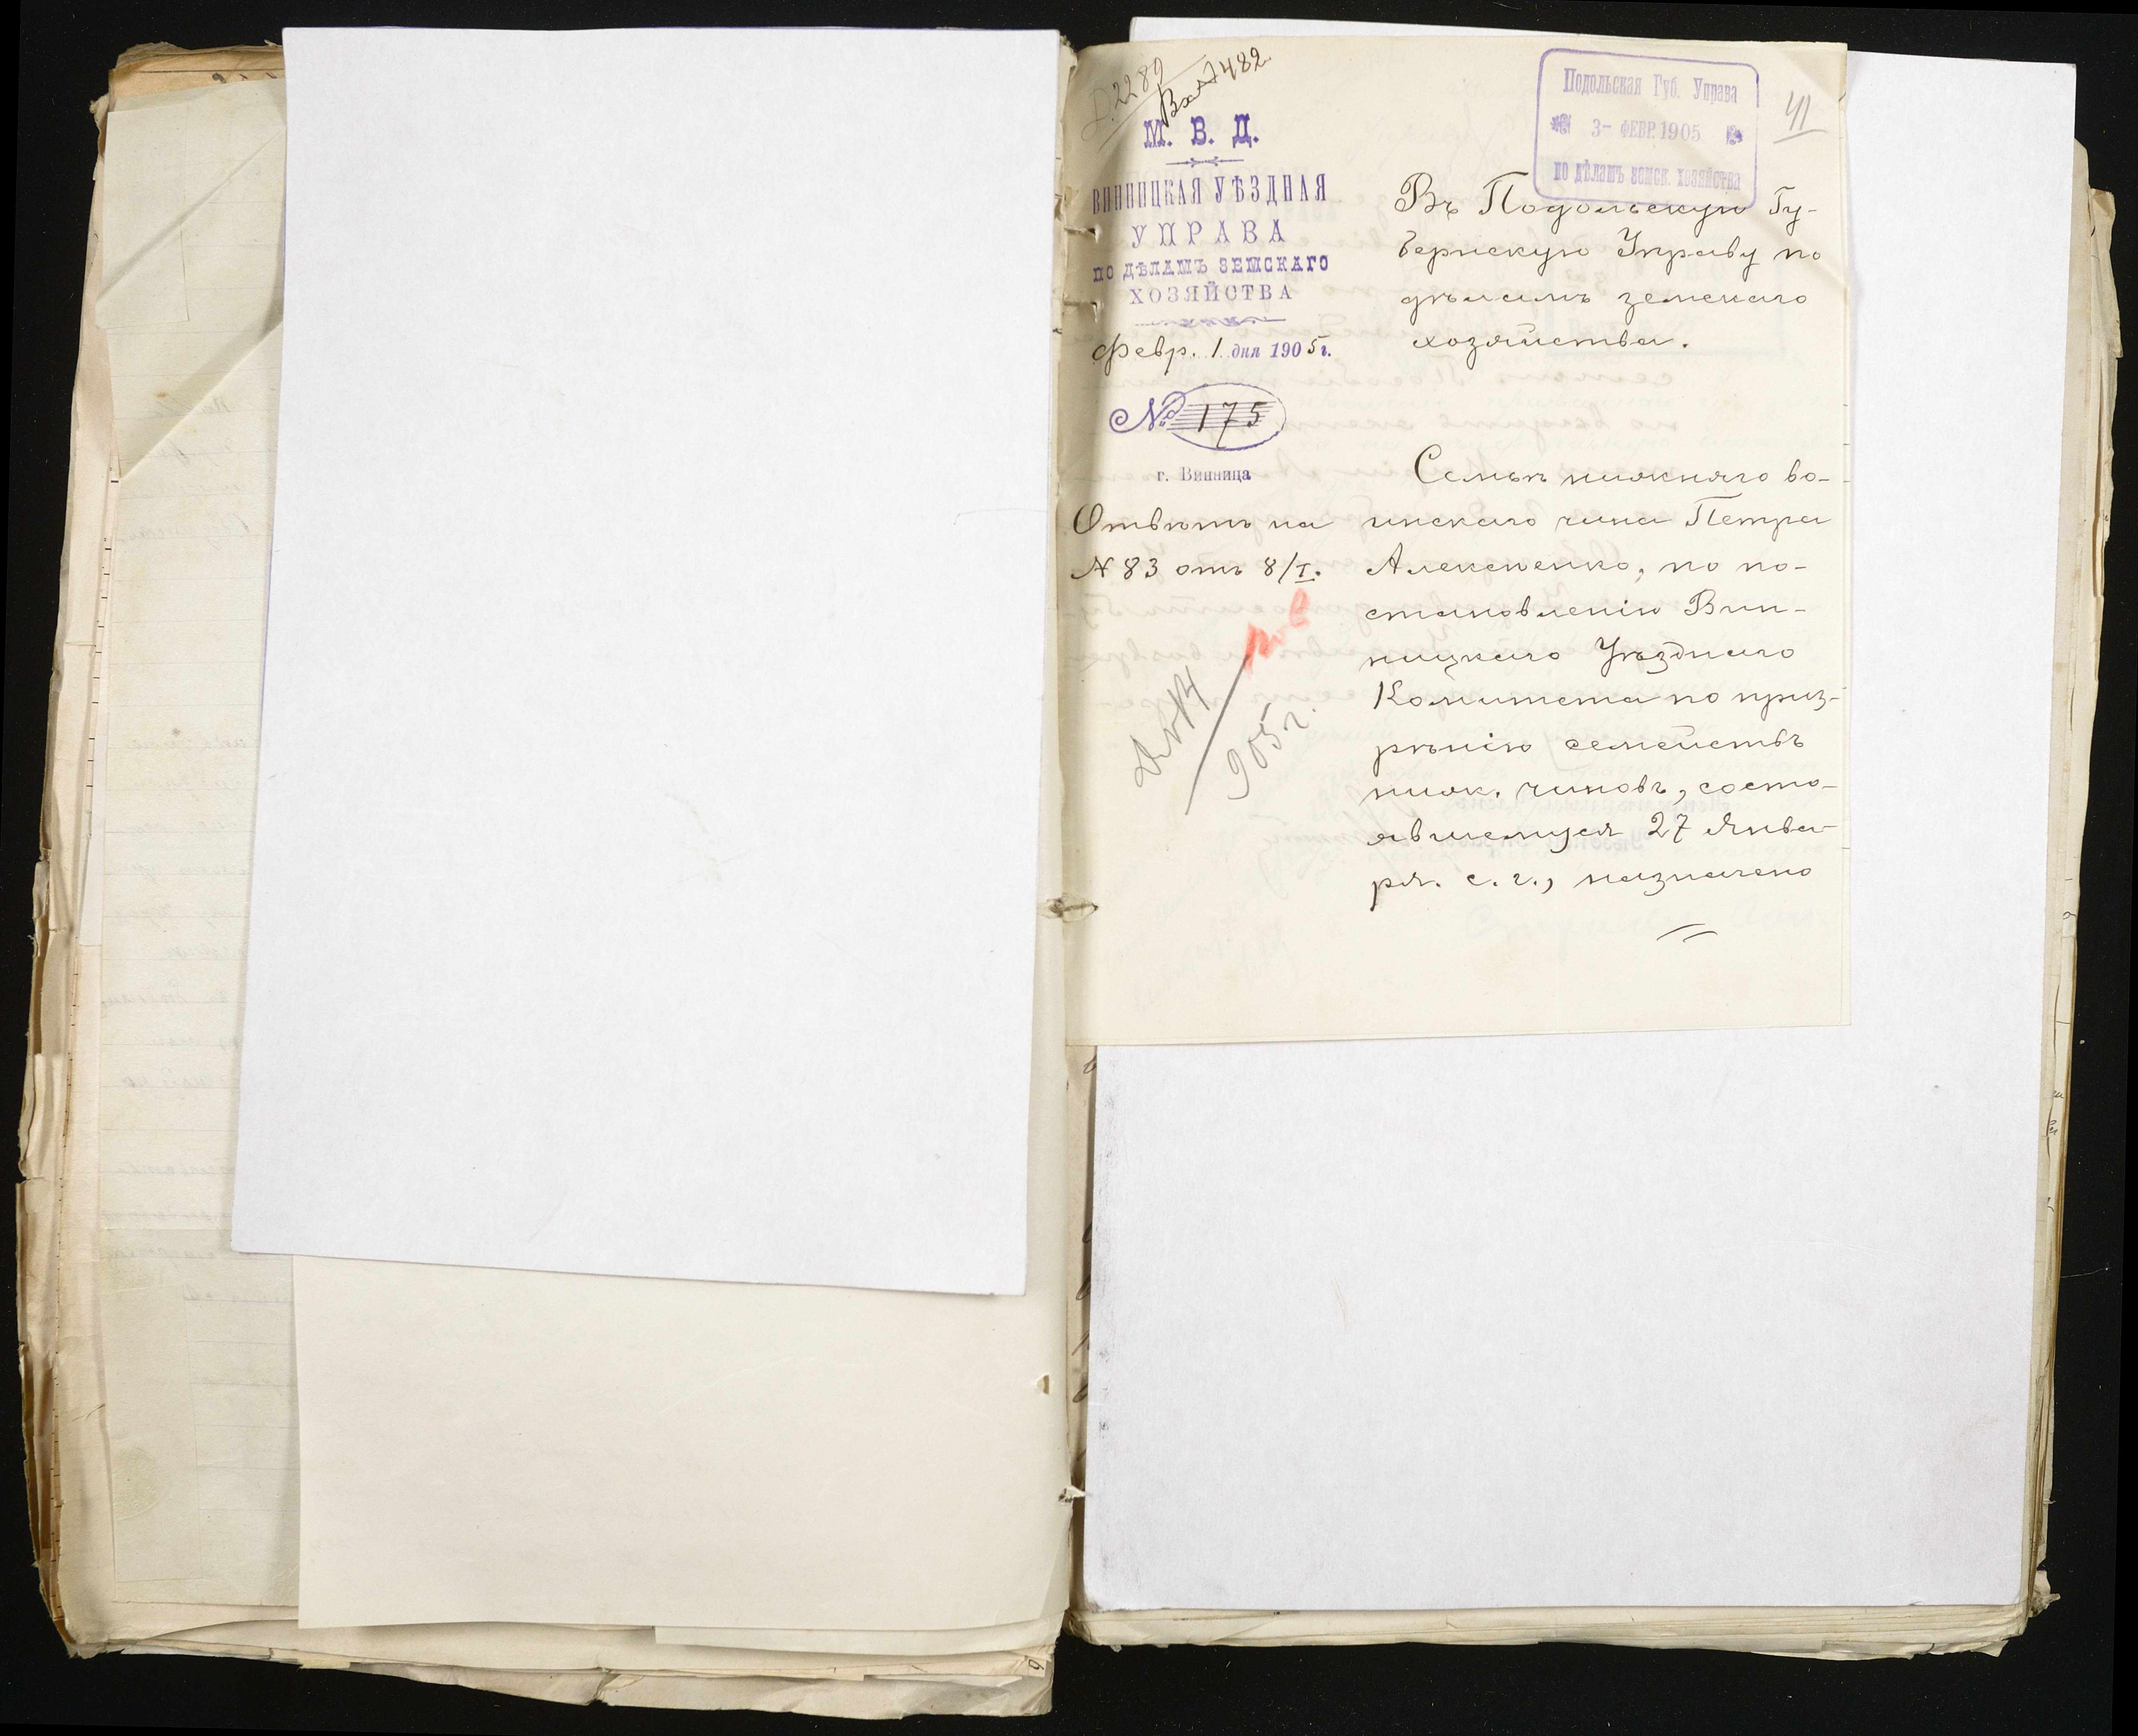 Д. 2289
Вх. № 482.
М. В. Д.
ВИННИЦКАЯ УѢЗДНАЯ
УПРАВА
ПО ДѢЛАМЪ ЗЕМСКАГО
ХОЗЯЙСТВА
Февр. 1 дня 1905 г.
№ 175
г. Винница
Отвѣтъ на
№ 83 отъ 8/I.
905 г.
Подольская Губ. Управа
3- ФЕВР. 1905
по дѣламъ земск. хозяйства
41
Въ Подольскую Гу-
бернскую Управу по
дѣламъ земскаго
хозяйства.
Семьѣ нижняго во-
инскаго чина Петра
Алексеенко, по по-
становленію Вин-
ницкаго Уѣзднаго
Комитета по приз-
рѣнію семействъ
ниж. чиновъ, состо-
явшемуся 27 Янва-
ря с. г., назначено